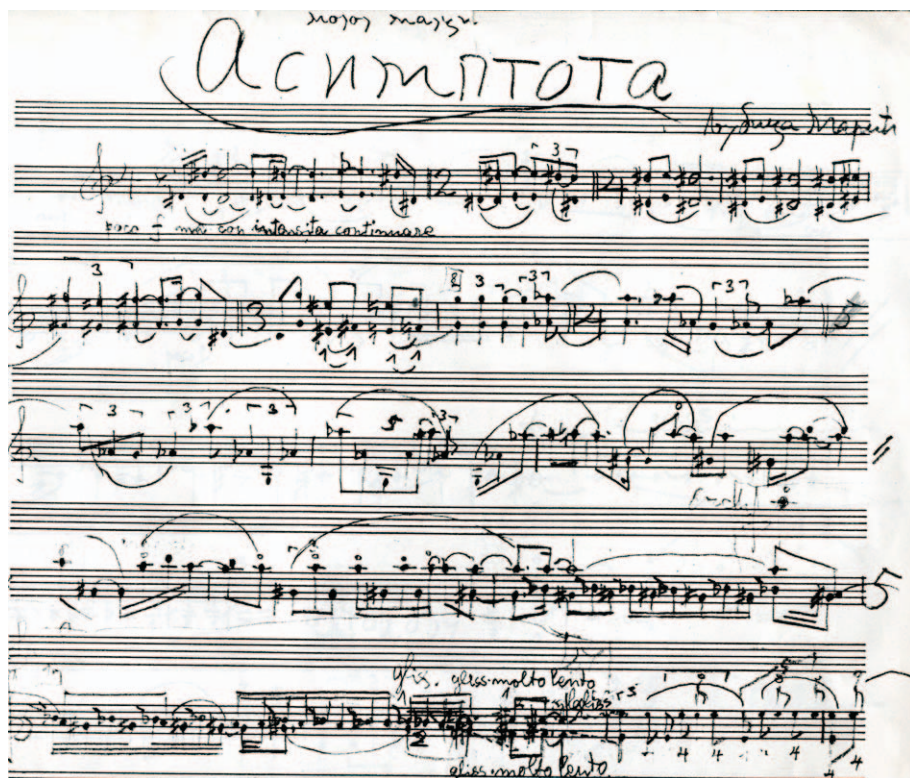 мојој мајци.
Асимптота
Љубица Марић
poco f ma con intensita continuare
glis. gliss.molto lento
gliss.molto lento